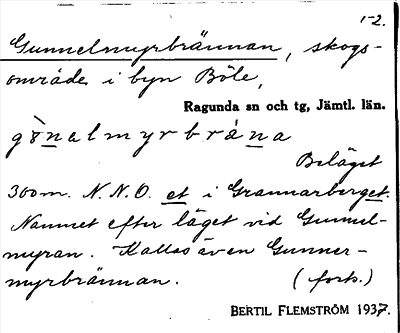 1-2.
Gunnelmyrbrännan, skogs-
område i byn Böle,
Ragunda sn och tg, Jämtl. län.
gònalmyrbrána
Beläget
300 m. N.N.O. et i Grannarberget.
Namnet efter läget vid Gunnel-
myran. Kallas även Gunner-
myrbrännan. (forts.)
BERTIL FLEMSTRÖM 1937.